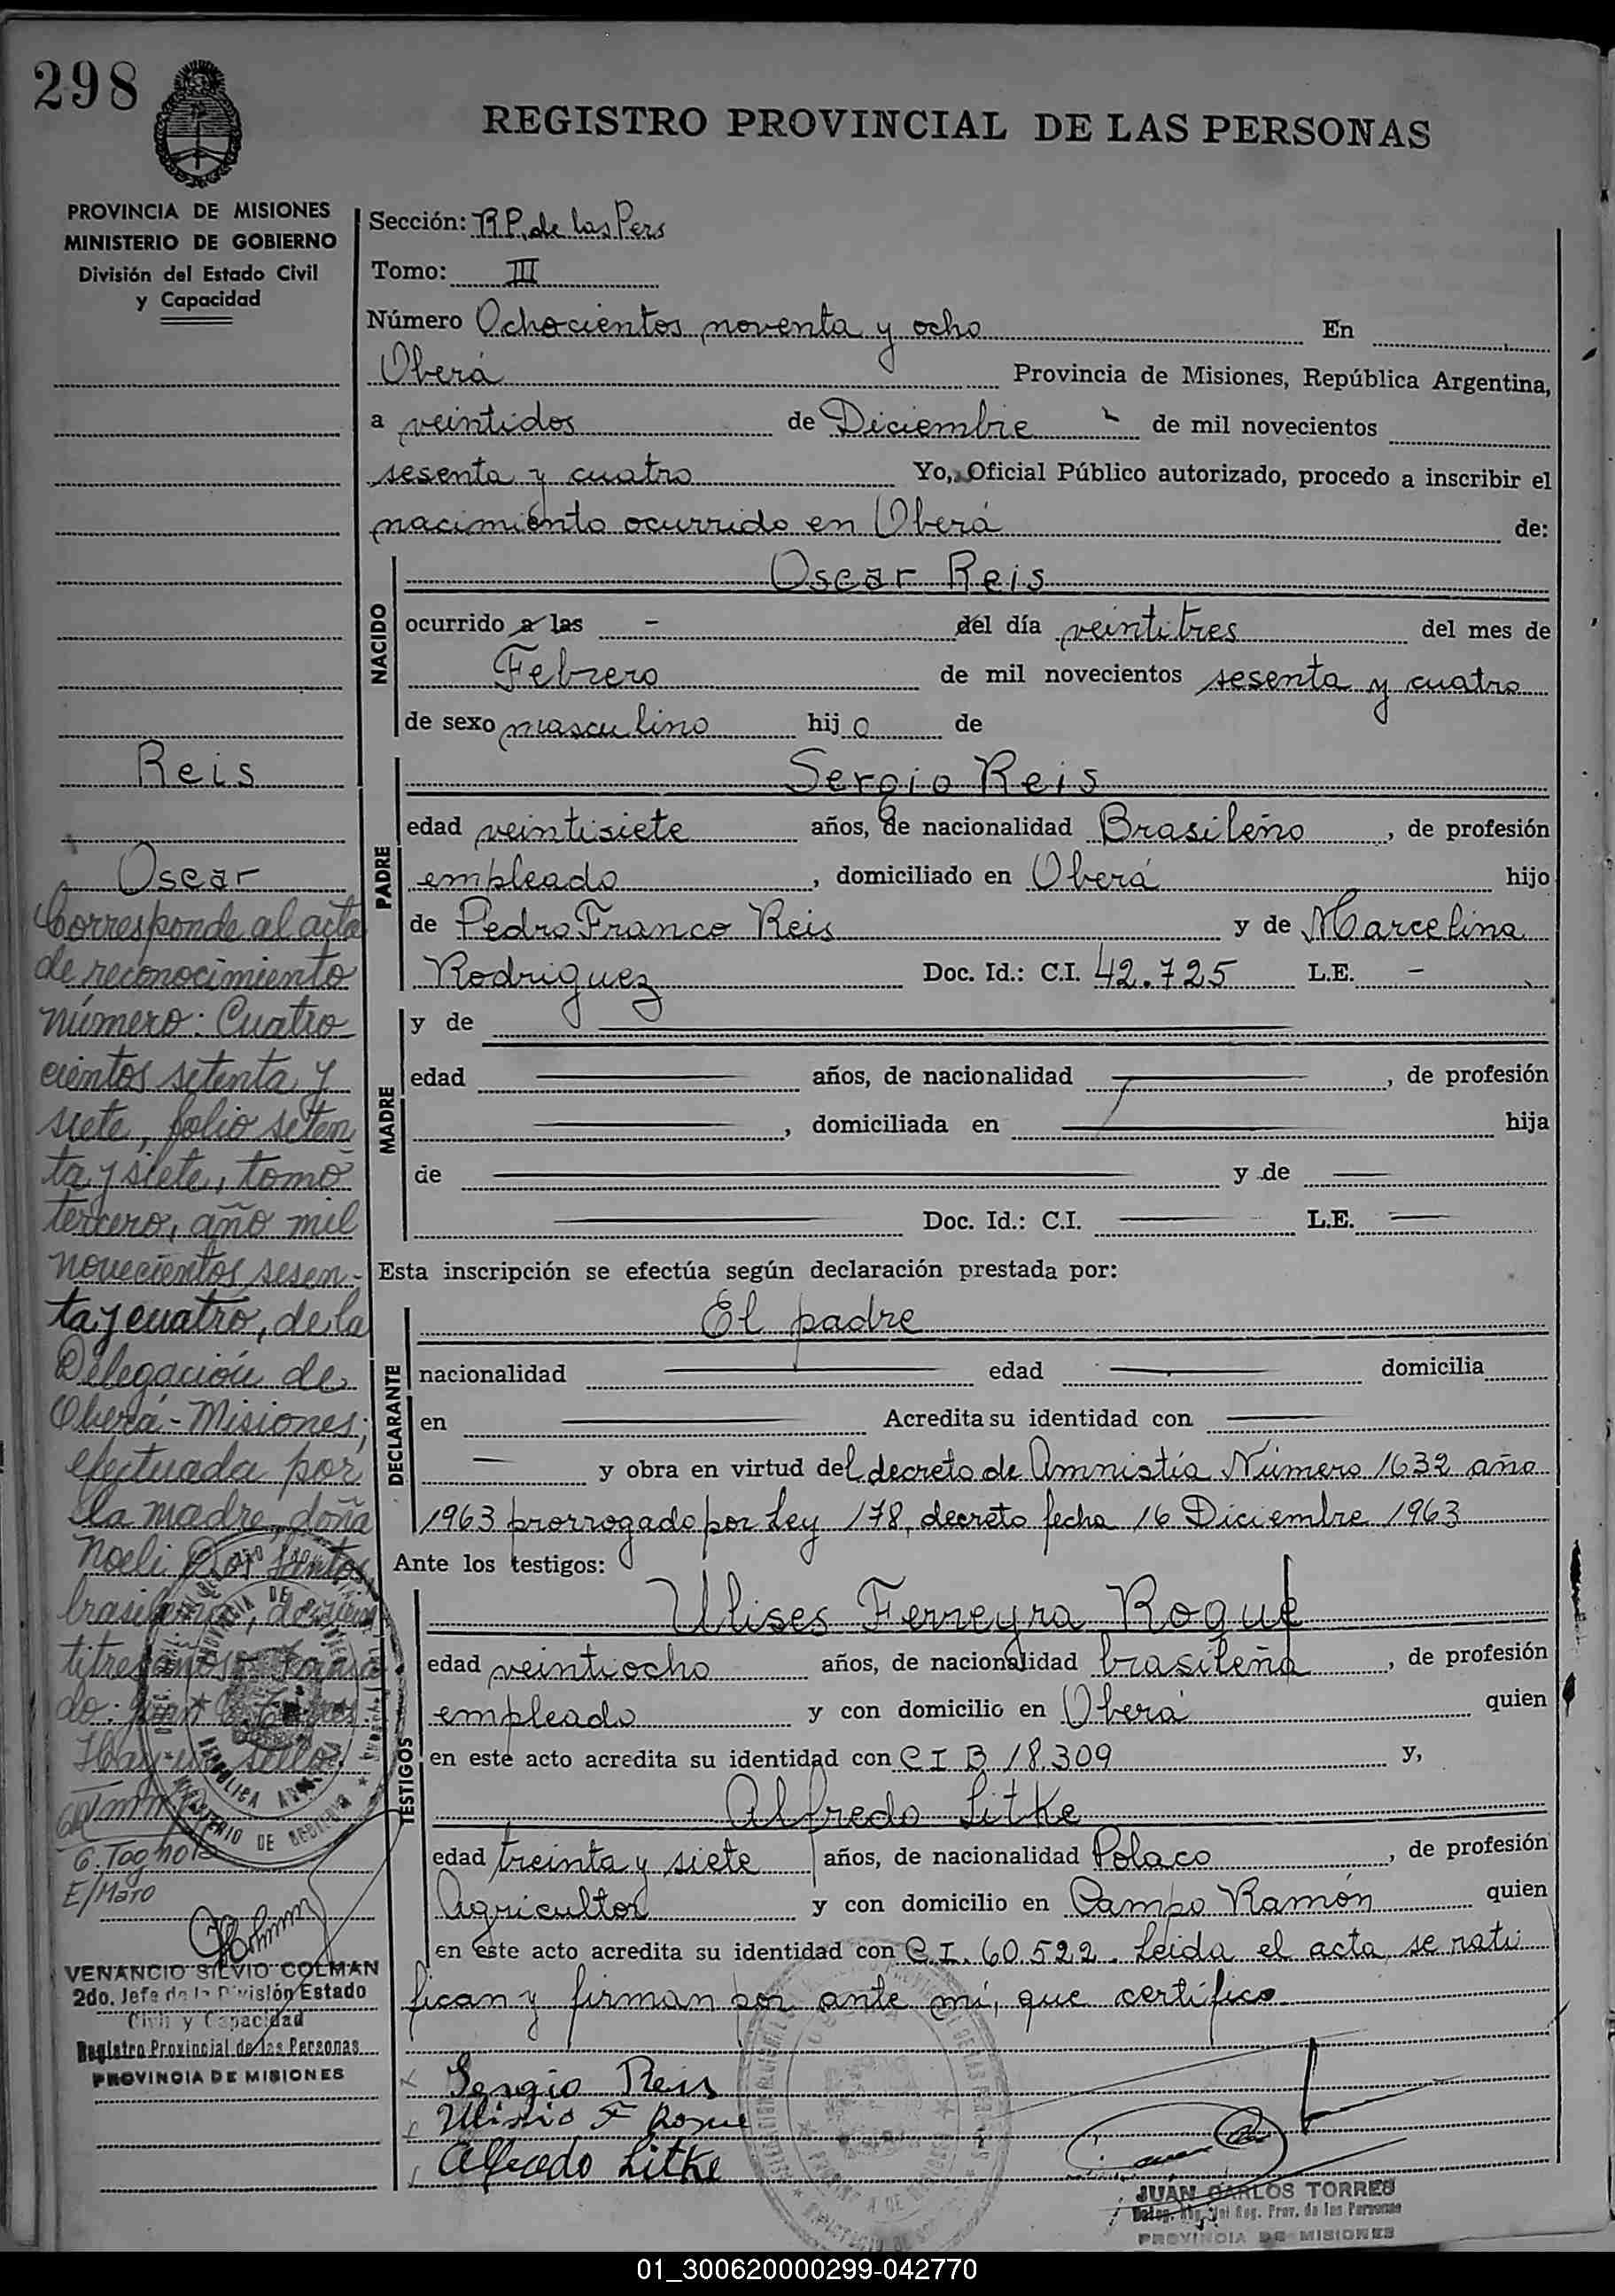 298
REGISTRO PROVINCIAL DE LAS PERSONAS
PROVINCIA DE MISIONES
MINISTERIO DE GOBIERNO
División del Estado Civil
y Capacidad
Sección: R.P. de las Pers
Tomo: III
Número Ochocientos noventa y ocho En
Oberá Provincia de Misiones, República Argentina,
a veintidos de Diciembre de mil novecientos
sesenta y cuatro Yo, Oficial Público autorizado, procedo a inscribir el
nacimiento ocurrido en Oberá de:
NACIDO
Oscar Reis
ocurrido a las - del día veintitres del mes de
Febrero de mil novecientos sesenta y cuatro
de sexo masculino hijo de
PADRE
Sergio Reis
edad veintisiete años, de nacionalidad Brasileño, de profesión
empleado, domiciliado en Oberá hijo
de Pedro Franco Reis y de Marcelina
Rodriguez Doc. Id.: C.I. 42.725 L.E. -
MADRE
y de
edad años, de nacionalidad , de profesión
, domiciliada en hija
de y de
Doc. Id.: C.I. L.E.
Esta inscripción se efectúa según declaración prestada por:
DECLARANTE
El padre
nacionalidad edad domicilia
en Acredita su identidad con
y obra en virtud del decreto de Amnistía Número 1632 año
1963 prorrogado por Ley 178, decreto fecha 16 Diciembre 1963
Ante los testigos:
TESTIGOS
Ulises Ferreyra Roque
edad veintiocho años, de nacionalidad brasileña, de profesión
empleado y con domicilio en Oberá quien
en este acto acredita su identidad con C I B 18.309 y,
Alfredo Litke
edad treinta y siete años, de nacionalidad Polaco, de profesión
Agricultor y con domicilio en Campo Ramón quien
en este acto acredita su identidad con C.I. 60.522. Leida el acta, se rati
fican y firman por ante mí, que certifico
Sergio Reis
Ulisio F Roque
Alfredo Litke
JUAN CARLOS TORRES
Reg. Prov. de las Personas
PROVINCIA DE MISIONES
Reis
Oscar
Corresponde al acta
de reconocimiento
número: Cuatro
cientos setenta y
siete, folio seten
ta y siete, tomo
tercero, año mil
novecientos sesen-
ta y cuatro, de la
Delegación de
Oberá - Misiones;
efectuada por
la madre, doña
Noeli Dos Santos,
brasileña, de vein
titres años
Hay un sello.
G. Tognola
E/Mato
VENANCIO SILVIO COLMAN
2do. Jefe de la División Estado
Civil y Capacidad
Registro Provincial de las Personas
PROVINCIA DE MISIONES
01_300620000299-042770